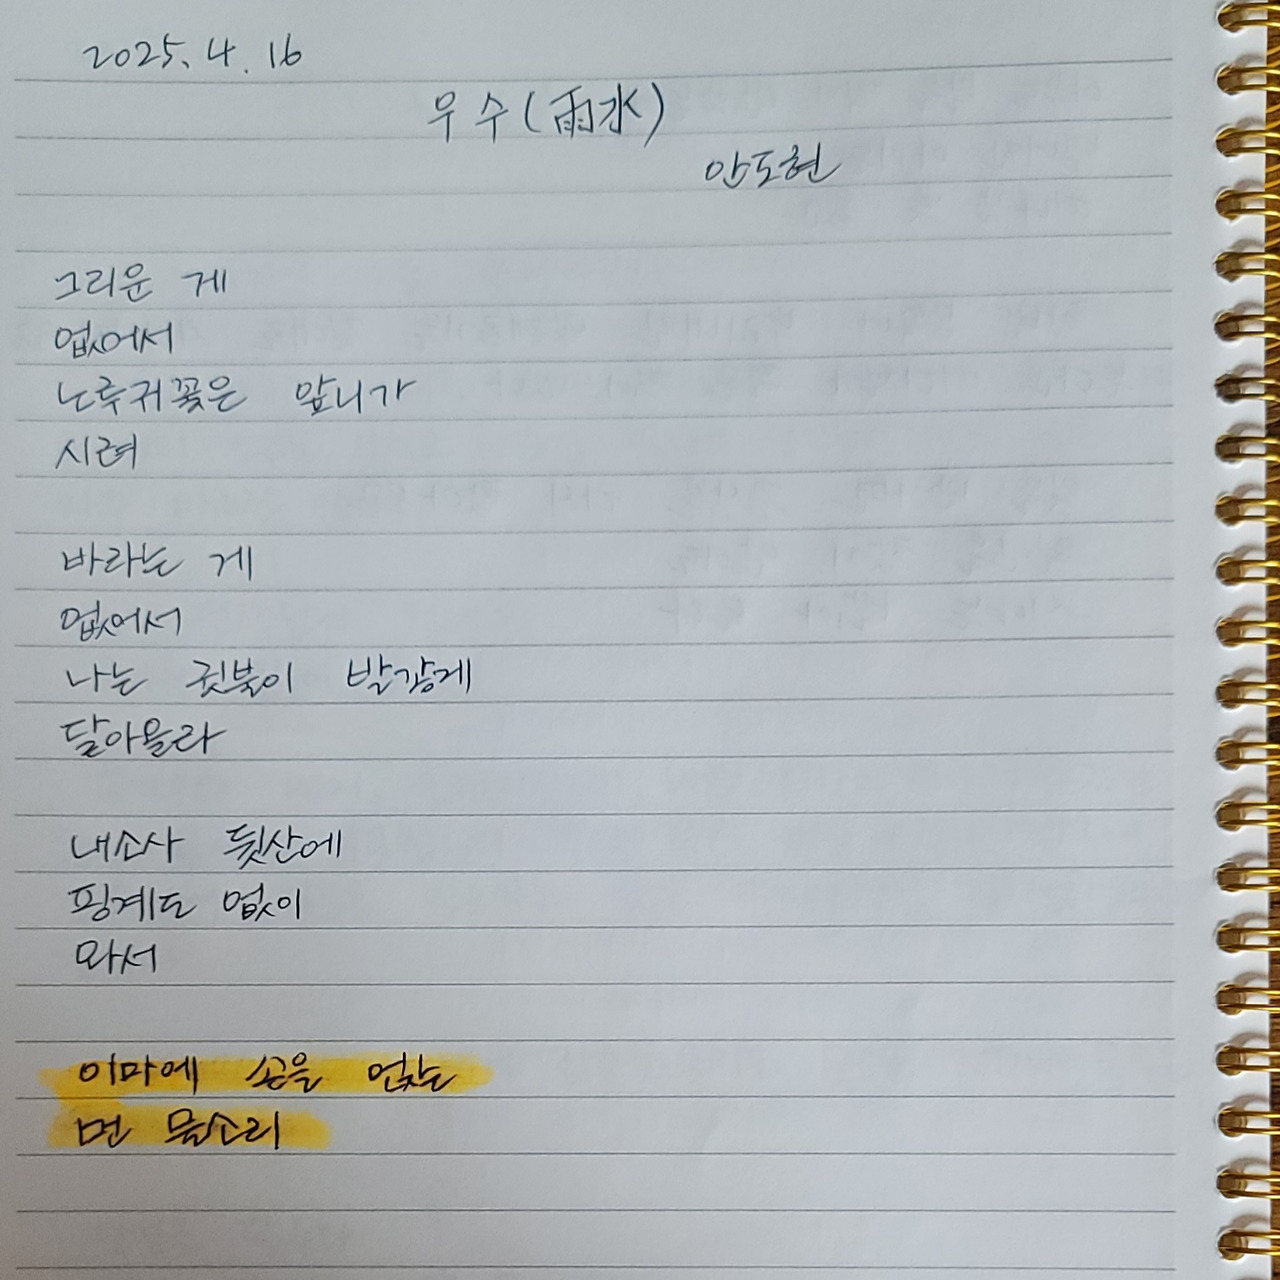 2025. 4. 16
우수(雨水)
안도현
그리운 게
없어서
노루귀꽃은 앞니가
시려
바라는 게
없어서
나는 귓불이 발갛게
달아올라
내소사 뒷산에
핑계도 없이
와서
이마에 손을 얹는
먼 물소리